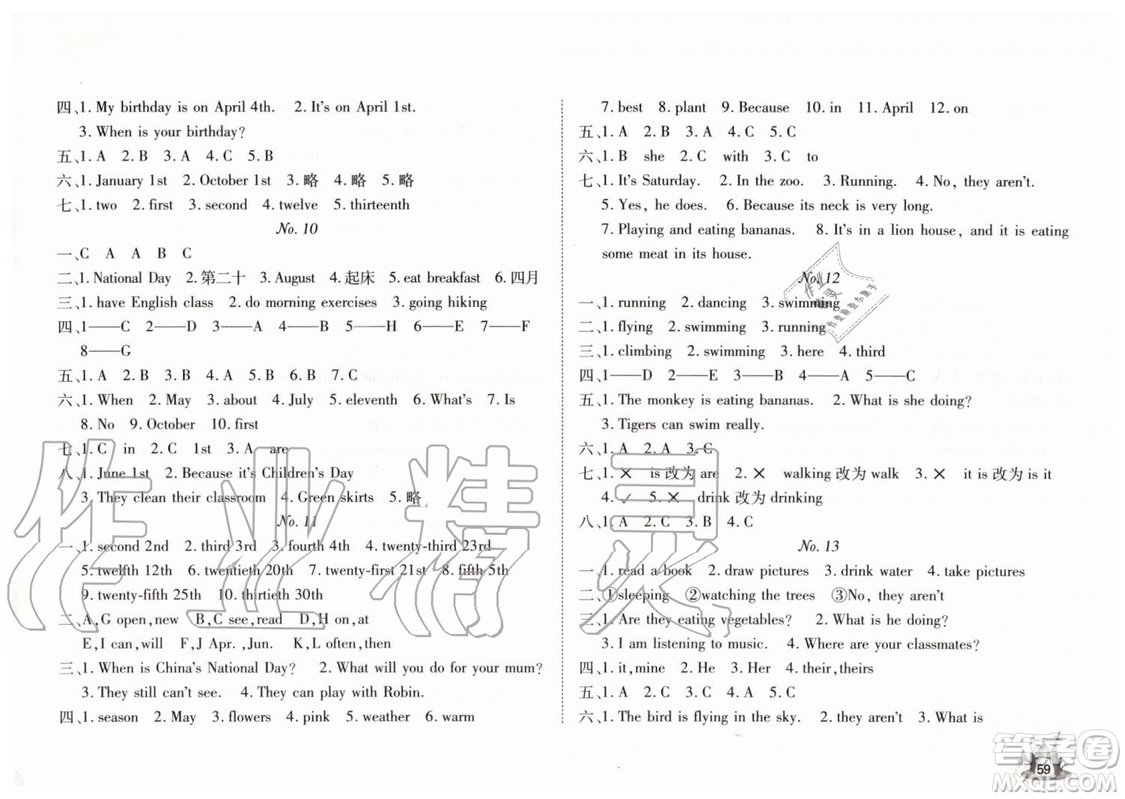 四、1. My birthday is on April 4th. 2. It's on April 1st.
3. When is your birthday?
五、1. A 2. B 3. A 4. C 5. B
六、1. January 1st 2. October 1st 3. 略 4. 略 5. 略
七、1. two 2. first 3. second 4. twelve 5. thirteenth
No. 10
一、C A A B C
二、1. National Day 2. 第二十 3. August 4. 起床 5. eat breakfast 6. 四月
三、1. have English class 2. do morning exercises 3. going hiking
四、1——C 2——D 3——A 4——B 5——H 6——E 7——F
8——G
五、1. C 2. A 3. B 4. C 5. A 6. B 7. C
六、1. When 2. May 3. about 4. July 5. eleventh 6. What's 7. Is
8. No 9. October 10. first
七、1. C in 2. C 1st 3. A are
八、1. June 1st 2. Because it's Children's Day
3. They clean their classroom 4. Green skirts 5. 略
No. 11
一、1. second 2nd 2. third 3rd 3. fourth 4th 4. twenty-third 23rd
5. twelfth 12th 6. twentieth 20th 7. twenty-first 21st 8. fifth 5th
9. twenty-fifth 25th 10. thirtieth 30th
二、A,G open,new B,C see,read D,H on,at
E,I can,will F,J Apr. ,Jun. K,L often,then
三、1. When is China's National Day? 2. What will you do for your mum?
3. They still can't see. 4. They can play with Robin.
四、1. season 2. May 3. flowers 4. pink 5. weather 6. warm
7. best 8. plant 9. Because 10. in 11. April 12. on
五、1. A 2. B 3. A 4. C 5. C
六、1. B she 2. C with 3. C to
七、1. It's Saturday. 2. In the zoo. 3. Running. 4. No, they aren't.
5. Yes, he does. 6. Because its neck is very long.
7. Playing and eating bananas. 8. It's in a lion house, and it is eating
some meat in its house.
No. 12
一、1. running 2. dancing 3. swimming
二、1. flying 2. swimming 3. running
三、1. climbing 2. words 3. here 4. third
四、1——D 2——E 3——B 4——A 5——C
五、1. The monkey is eating bananas. 2. What is she doing?
3. Tigers can swim really.
六、1. A 2. A 3. C
七、1. ✕ is 改为 are 2. ✕ walking 改为 walk 3. ✕ it is 改为 is it
4. ✓ 5. ✕ drink 改为 drinking
八、1. A 2. C 3. B 4. C
No. 13
一、1. read a book 2. draw pictures 3. drink water 4. take pictures
二、①sleeping ②watching the trees ③No, they aren't
三、1. Are they eating vegetables? 2. What is he doing?
3. I am listening to music. 4. Where are your classmates?
四、1. it,mine 2. He 3. Her 4. their,theirs
五、1. A 2. C 3. A 4. C
六、1. The bird is flying in the sky. 2. they aren't 3. What is
59
作业精灵
答案卷
MXQE.COM